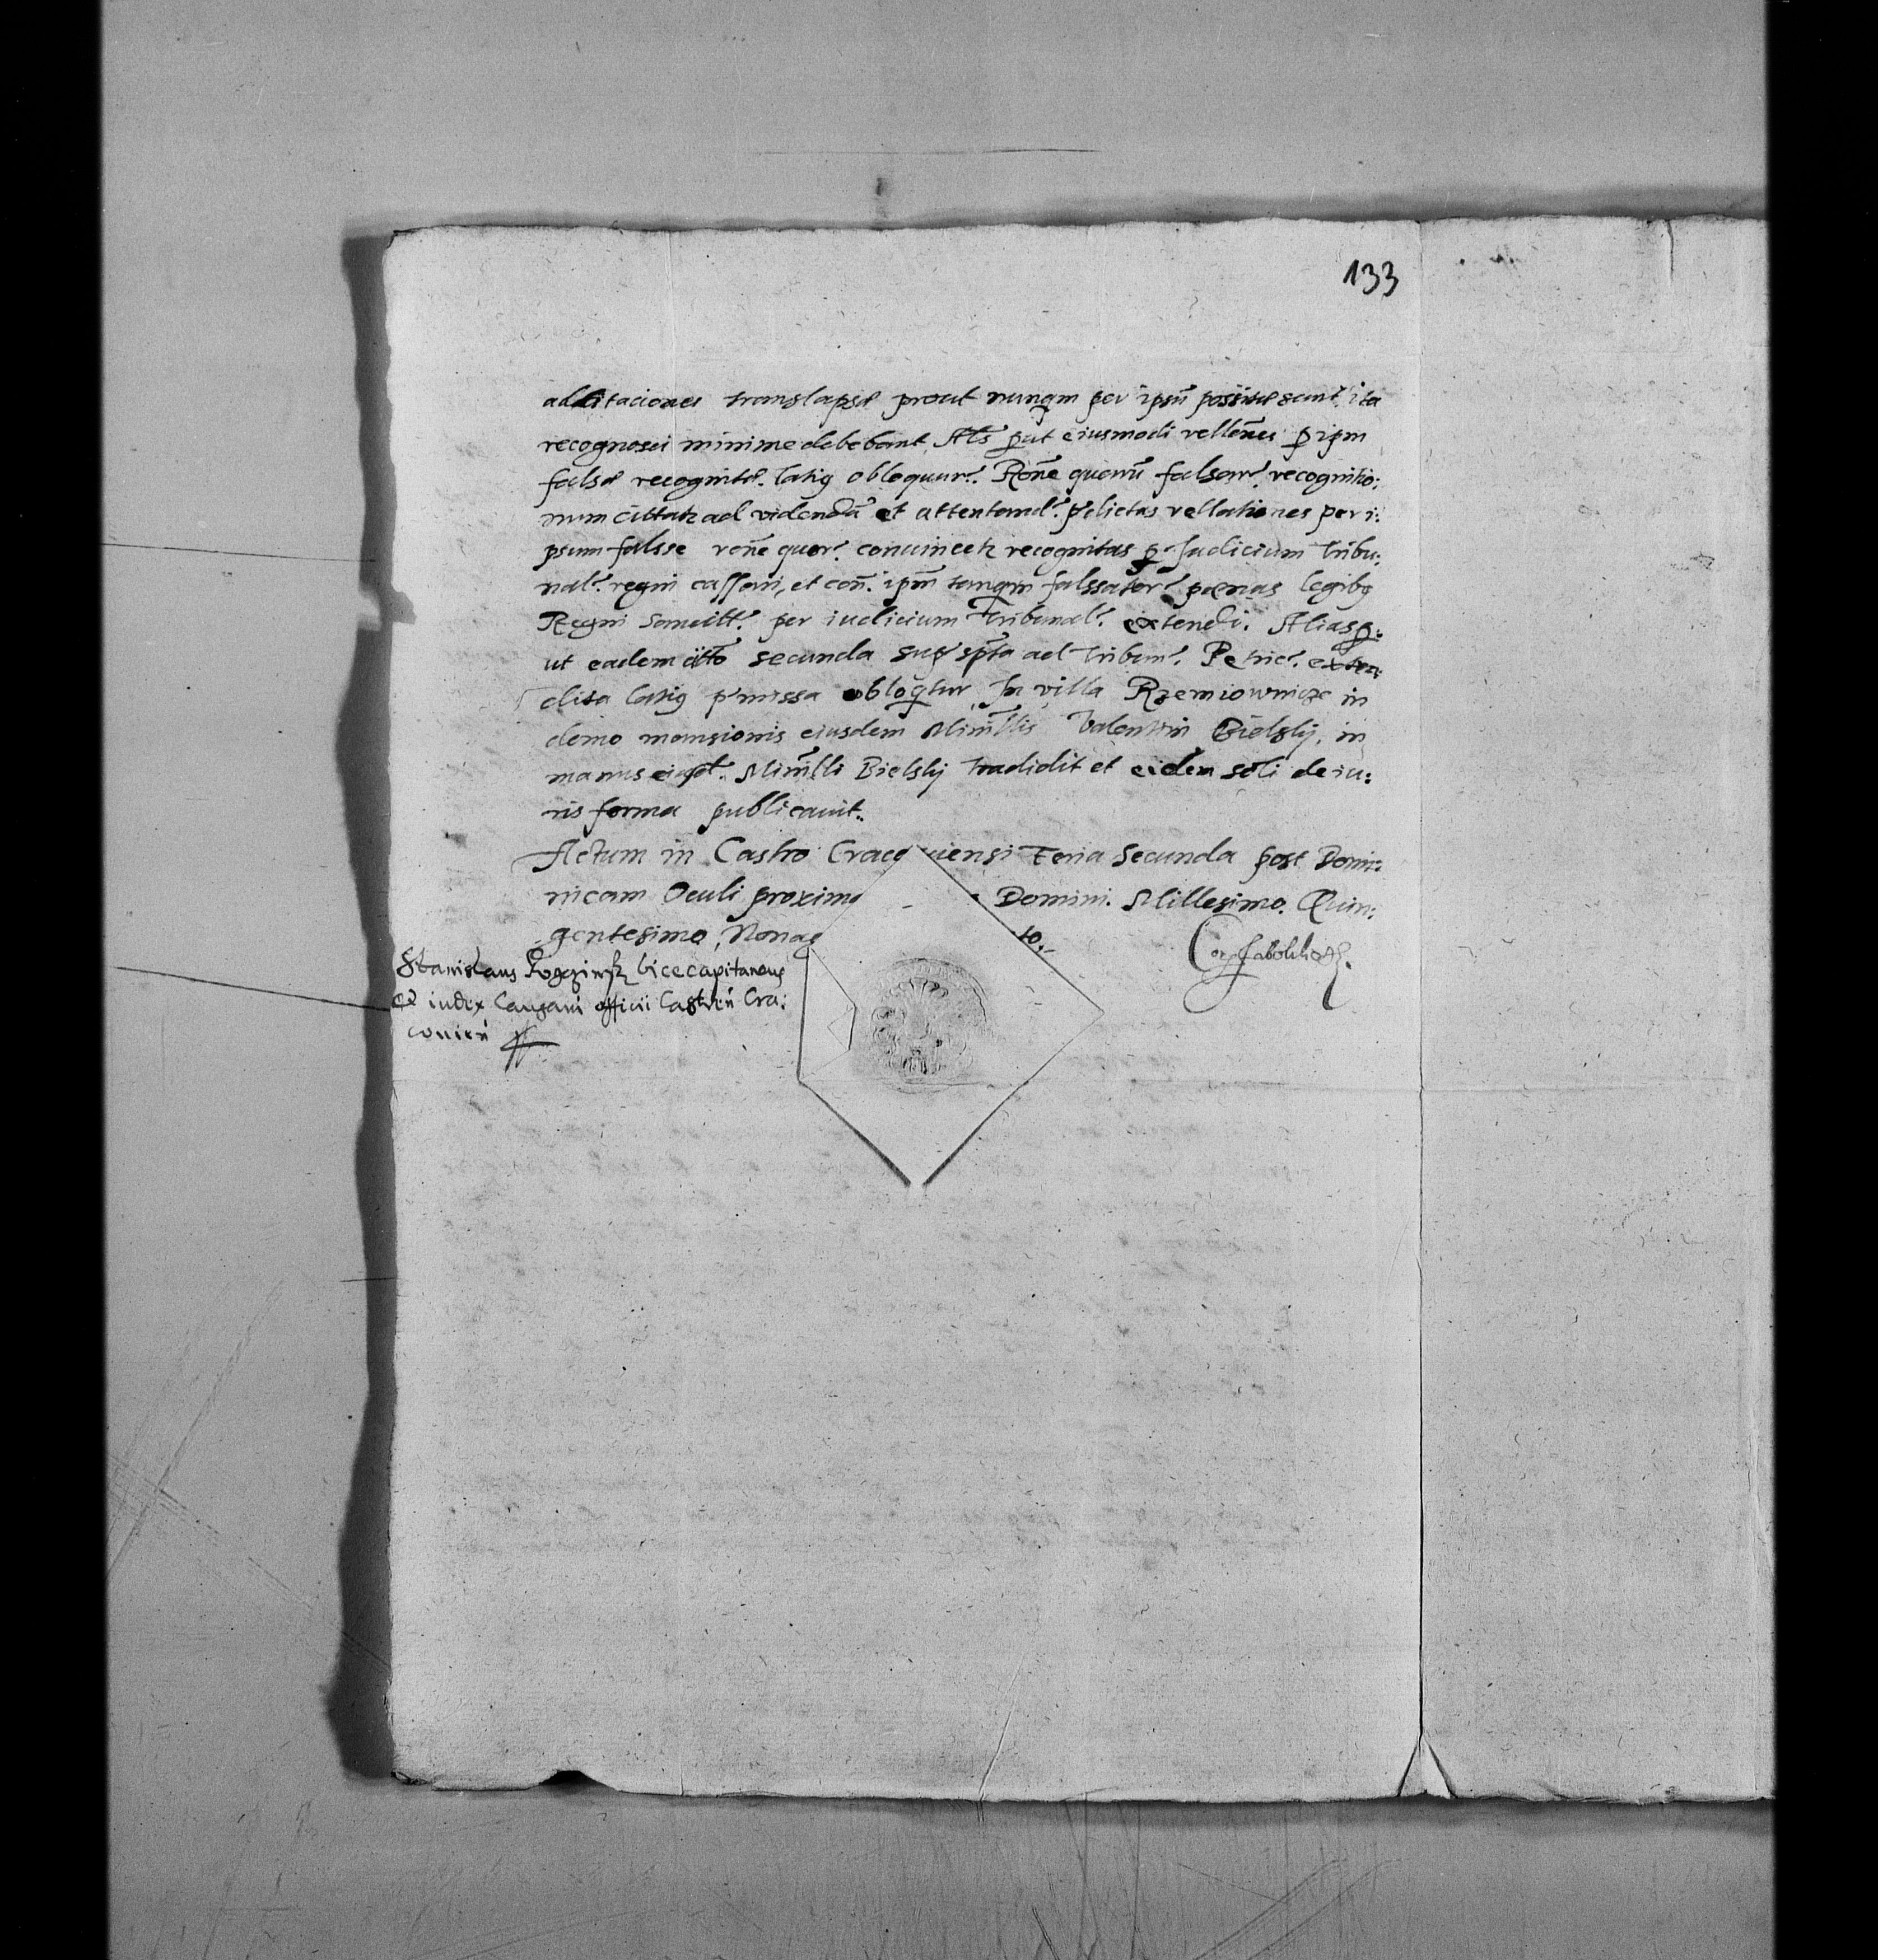 133
additaciones translapsæ prout nunqm per ipsũ positæ sunt ita
recognosci minime debebant, Als put eiusmodi rellones p ipm
falsæ recognitæ latig obloquur. Rone quarũ falsar. recognitio:
num cittatz ad videndũ et attentand. prelictas rellationes per i:
psum falsse rone quor. convincetz recognitas p Judicium Tribu:
nal. regni cassari, et con. ipm tanqm falssator. pænas legibg
Regni sancitt. per iudicium Tribunal. extendi. Alias p:
ut eadem citto secunda sup spta ad Tribun. Petric.
dita latig pmissa obloqtur, In villa Rzemiownicze in
domo mansionis eiusdem Ministlis Valentin Bielsky, in
manus eiusd. Ministli Bielsky tradidit et eidem soli de iu:
ris forma publicavit.
Actum in Castro Craco viensi Feria Secunda post Domi:
nicam Oculi proxima Domini. Millesimo. Quin:
gentesimo, Nonag to.
Stanislaus vicecapitaneus
et iudex Causarũ officii Castren Cra:
covien